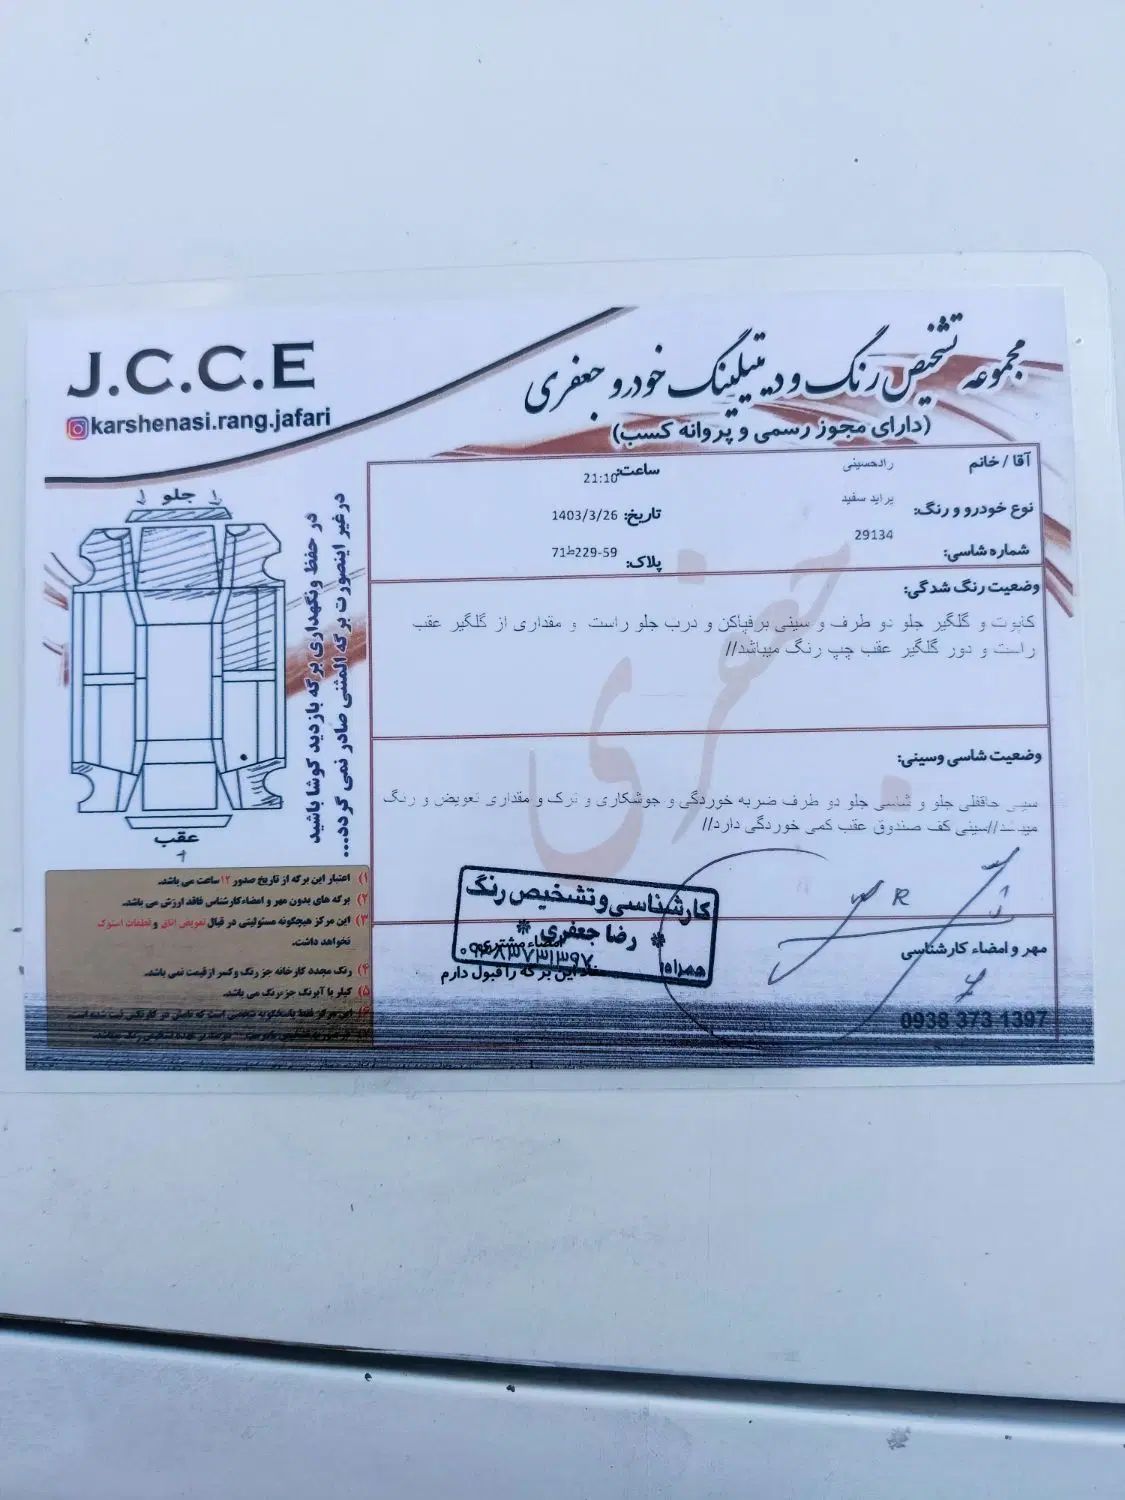 J.C.C.E
karshenasi.rang.jafari
مجموعه تشخیص رنگ و دیتیلینگ خودرو جعفری
(دارای مجوز رسمی و پروانه کسب)
آقا / خانم
رادحسینی
ساعت: 21:10
نوع خودرو و رنگ:
پراید سفید
تاریخ: 1403/3/26
شماره شاسی:
29134
پلاک: 59-229ط71
وضعیت رنگ شدگی:
کاپوت و گلگیر جلو دو طرف و سینی برفپاکن و درب جلو راست و مقداری از گلگیر عقب
راست و دور گلگیر عقب چپ رنگ میباشد//
وضعیت شاسی وسینی:
سینی جاقفلی جلو و شاسی جلو دو طرف ضربه خوردگی و جوشکاری و ترک و مقداری تعویض و رنگ
میباشد//سینی کف صندوق عقب کمی خوردگی دارد//
مهر و امضاء کارشناسی
0938 373 1397
کارشناسی و تشخیص رنگ
* رضا جعفری *
همراه: ۰۹۳۸۳۷۳۱۳۹۷
امضاء مشتری
این برگه را قبول دارم
جلو
عقب
در حفظ ونگهداری برگه بازدید کوشا باشید
درغیر اینصورت برگه المثنی صادر نمی گردد...
۱) اعتبار این برگه از تاریخ صدور ۱۲ ساعت می باشد.
۲) برگه های بدون مهر و امضاء کارشناس فاقد ارزش می باشد.
۳) این مرکز هیچگونه مسئولیتی در قبال تعویض اتاق و قطعات استوک
نخواهد داشت.
۴) رنگ مجدد کارخانه جز رنگ وکسر ازقیمت نمی باشد.
۵) کیلر یا آبرنگ جز رنگ می باشد.
۶) این مرکز فقط پاسخگو به شخصی است که نامش در کارتکس ثبت شده است.